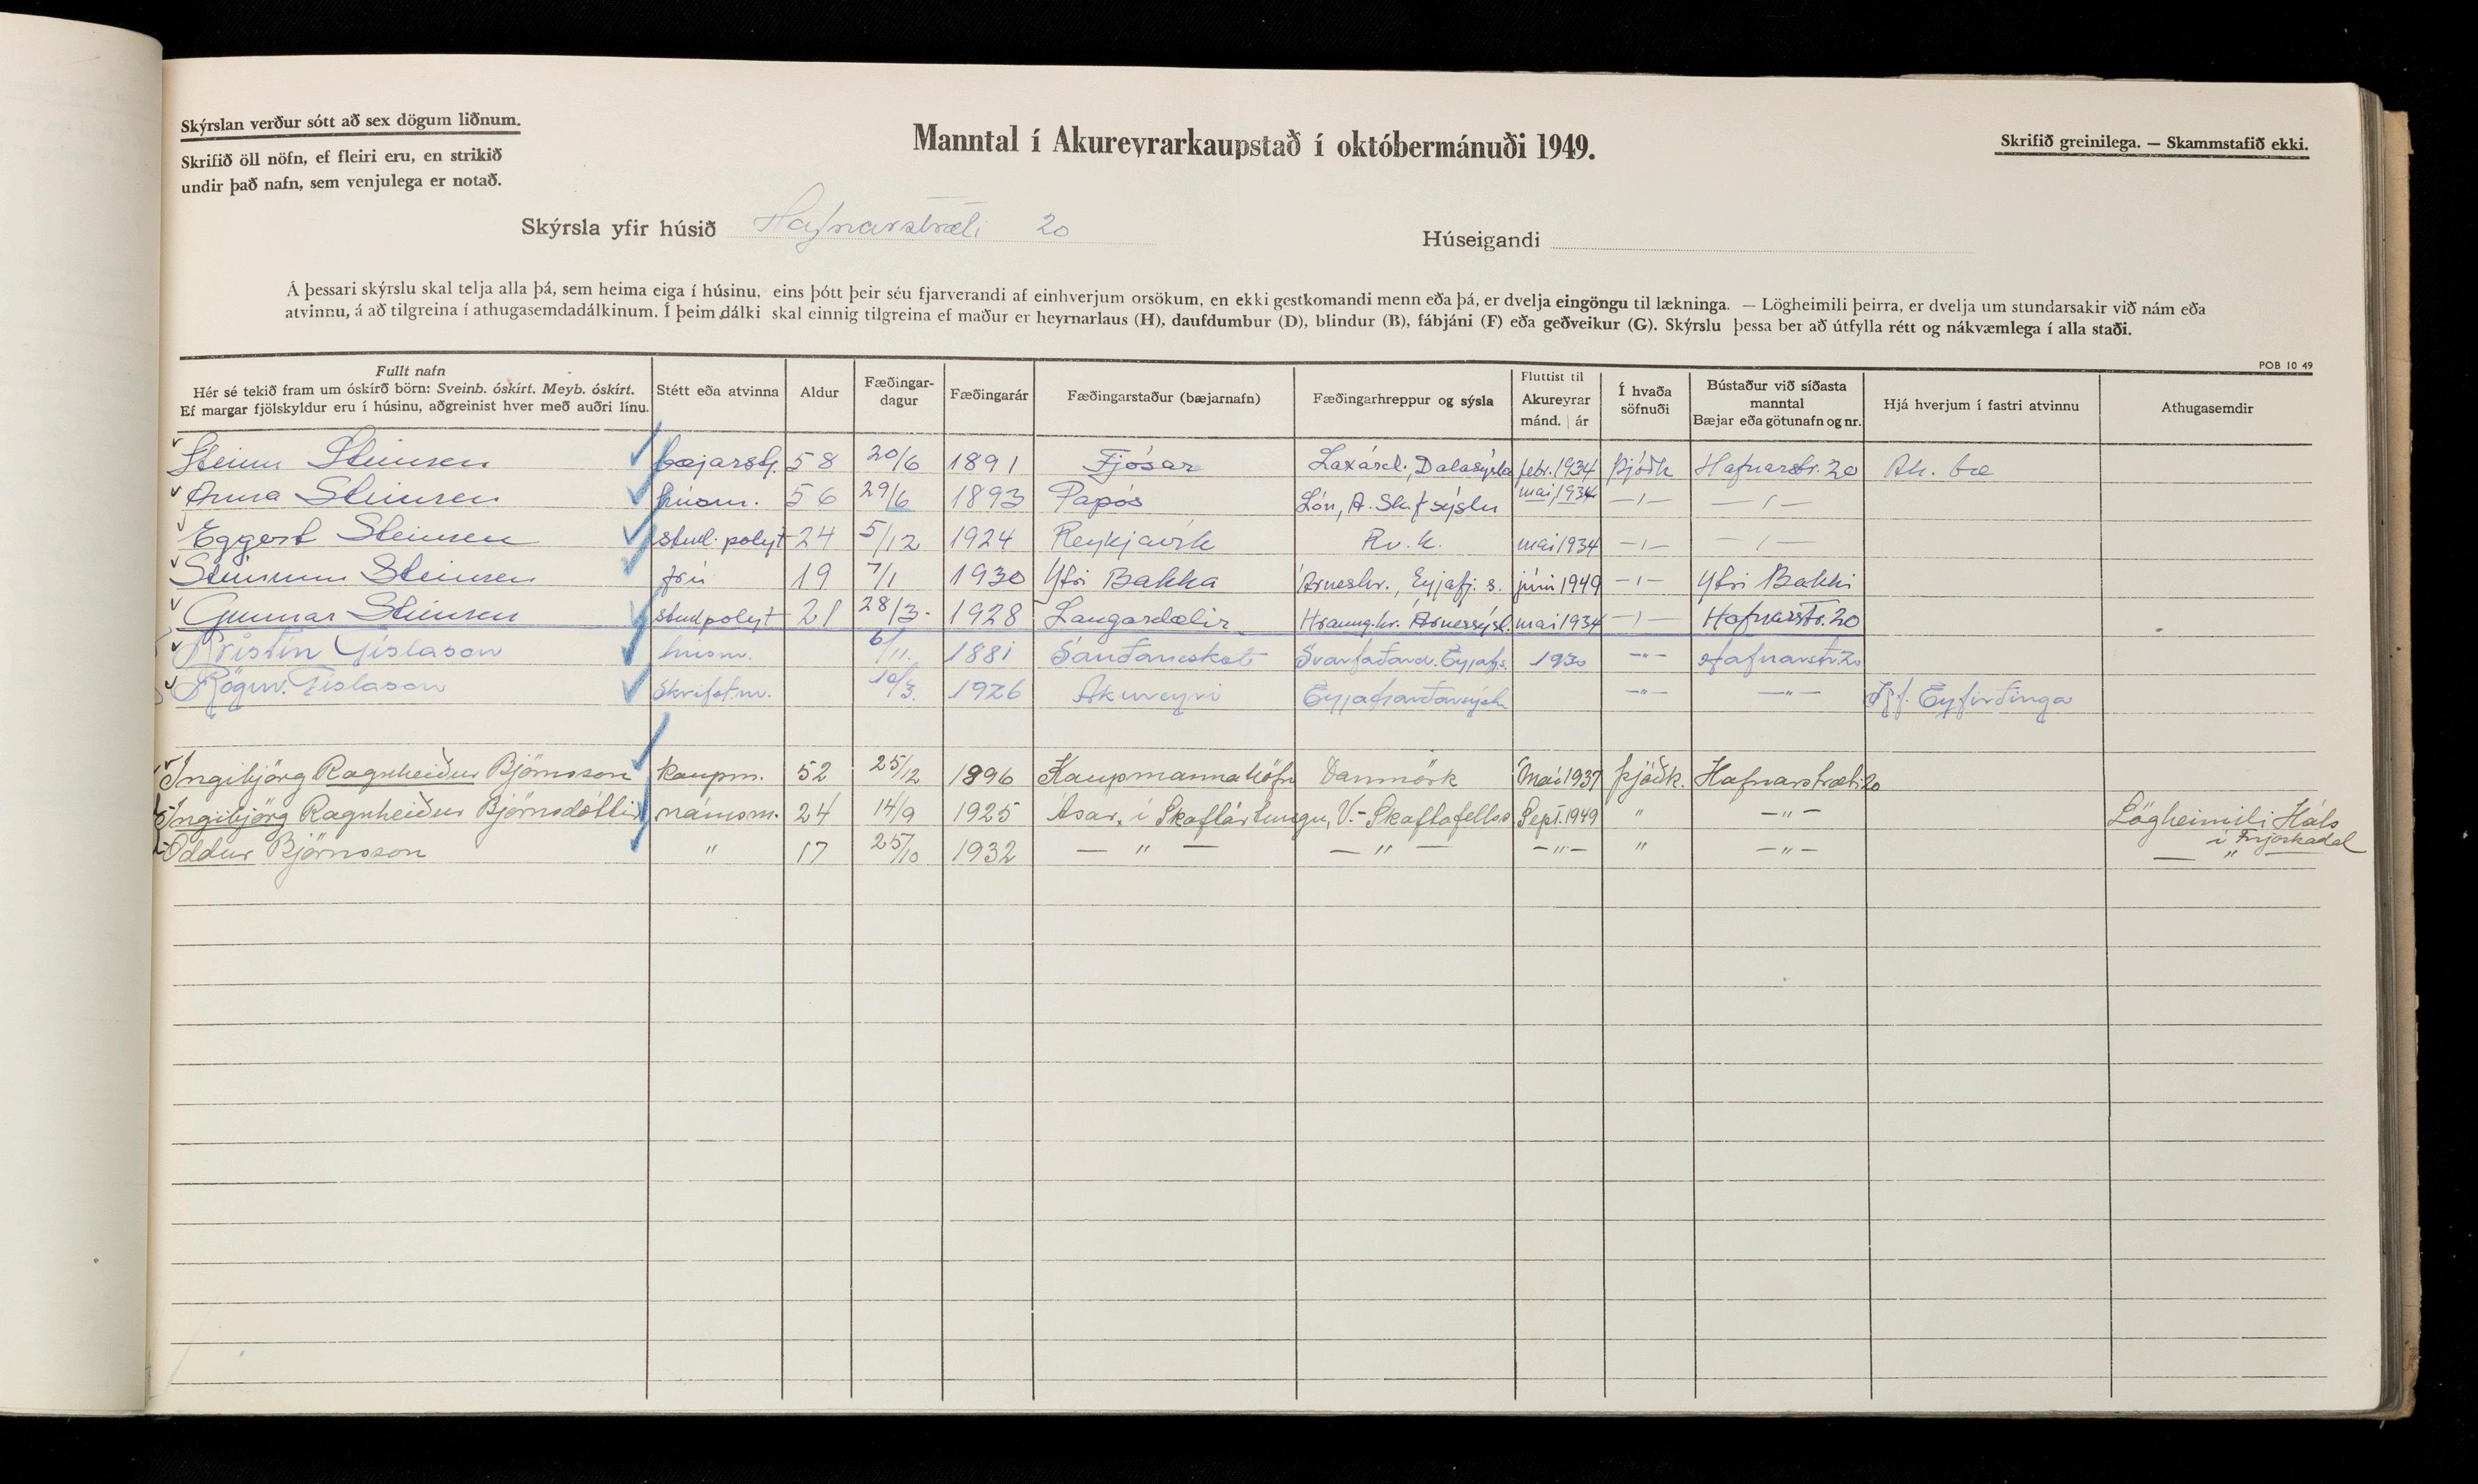 Skýrslan verður sótt að sex dögum liðnum.
Skrifið öll nöfn, ef fleiri eru, en strikið
undir það nafn, sem venjulega er notað.
Manntal í Akureyrarkaupstað í októbermánuði 1949.
Skrifið greinilega. — Skammstafið ekki.
Skýrsla yfir húsið Hafnarstræti 20
Húseigandi
Á þessari skýrslu skal telja alla þá, sem heima eiga í húsinu, eins þótt þeir séu fjarverandi af einhverjum orsökum, en ekki gestkomandi menn eða þá, er dvelja eingöngu til lækninga. — Lögheimili þeirra, er dvelja um stundarsakir við nám eða
atvinnu, á að tilgreina í athugasemdadálkinum. Í þeim dálki skal einnig tilgreina ef maður er heyrnarlaus (H), daufdumbur (D), blindur (B), fábjáni (F) eða geðveikur (G). Skýrslu þessa ber að útfylla rétt og nákvæmlega í alla staði.
POB 10 49
Fullt nafn
Hér sé tekið fram um óskírð börn: Sveinb. óskírt. Meyb. óskírt.
Ef margar fjölskyldur eru í húsinu, aðgreinist hver með auðri línu.
Stétt eða atvinna
Aldur
Fæðingar-
dagur
Fæðingarár
Fæðingarstaður (bæjarnafn)
Fæðingarhreppur og sýsla
Fluttist til
Akureyrar
mánd. | ár
Í hvaða
söfnuði
Bústaður við síðasta
manntal
Bæjar eða götunafn og nr.
Hjá hverjum í fastri atvinnu
Athugasemdir
Steinn Steinsen bæjarstj. 58 20/6 1891 Fjósar Laxárd., Dalasýsla febr. 1934 þjóðk Hafnarstr. 20 Ak. bæ
Anna Steinsen húsm. 56 29/6 1893 Papós Lón, A. Skaf sýslu mai 1934 —〃— —〃—
Eggert Steinsen stud. polyt 24 5/12 1924 Reykjavík Rv.k. mai 1934 —〃— —〃—
Steinunn Steinsen frú 19 7/1 1930 Ytri Bakka Arneshr., Eyjafj. s. júní 1949 —〃— Ytri Bakki
Gunnar Steinsen stud polyt 21 28/3 1928 Laugardælir Hraung.hr. Árnessýsl. mai 1934 —〃— Hafnarstr. 20
Kristín Gíslason húsm. 6/11. 1881 Svarfaðard. Eyjafs. 1930 —〃— Hafnarstr. 20
Rögnv. Gíslason skrifstm. 16/3. 1926 Akureyri Eyjafjarðarsýsla —〃— —〃— Kf. Eyfirðinga
Ingibjörg Ragnheiður Björnsson kaupm. 52 25/12 1896 Kaupmannahöfn Danmörk Maí 1937 þjóðk. Hafnarstræti 20
Ingibjörg Ragnheiður Björnsdóttir námsm. 24 14/9 1925 Ásar, í Skaftártungu, V.-Skaftafellss. Sept. 1949 〃 —〃— Lögheimili Háls
í Fnjóskadal
Oddur Björnsson 〃 17 25/10 1932 —〃— —〃— —〃— 〃 —〃— —〃—